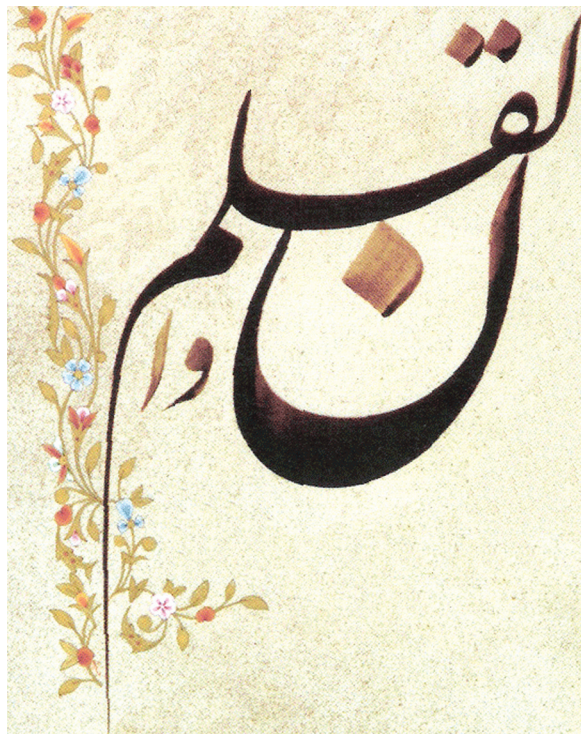 ن والقلم